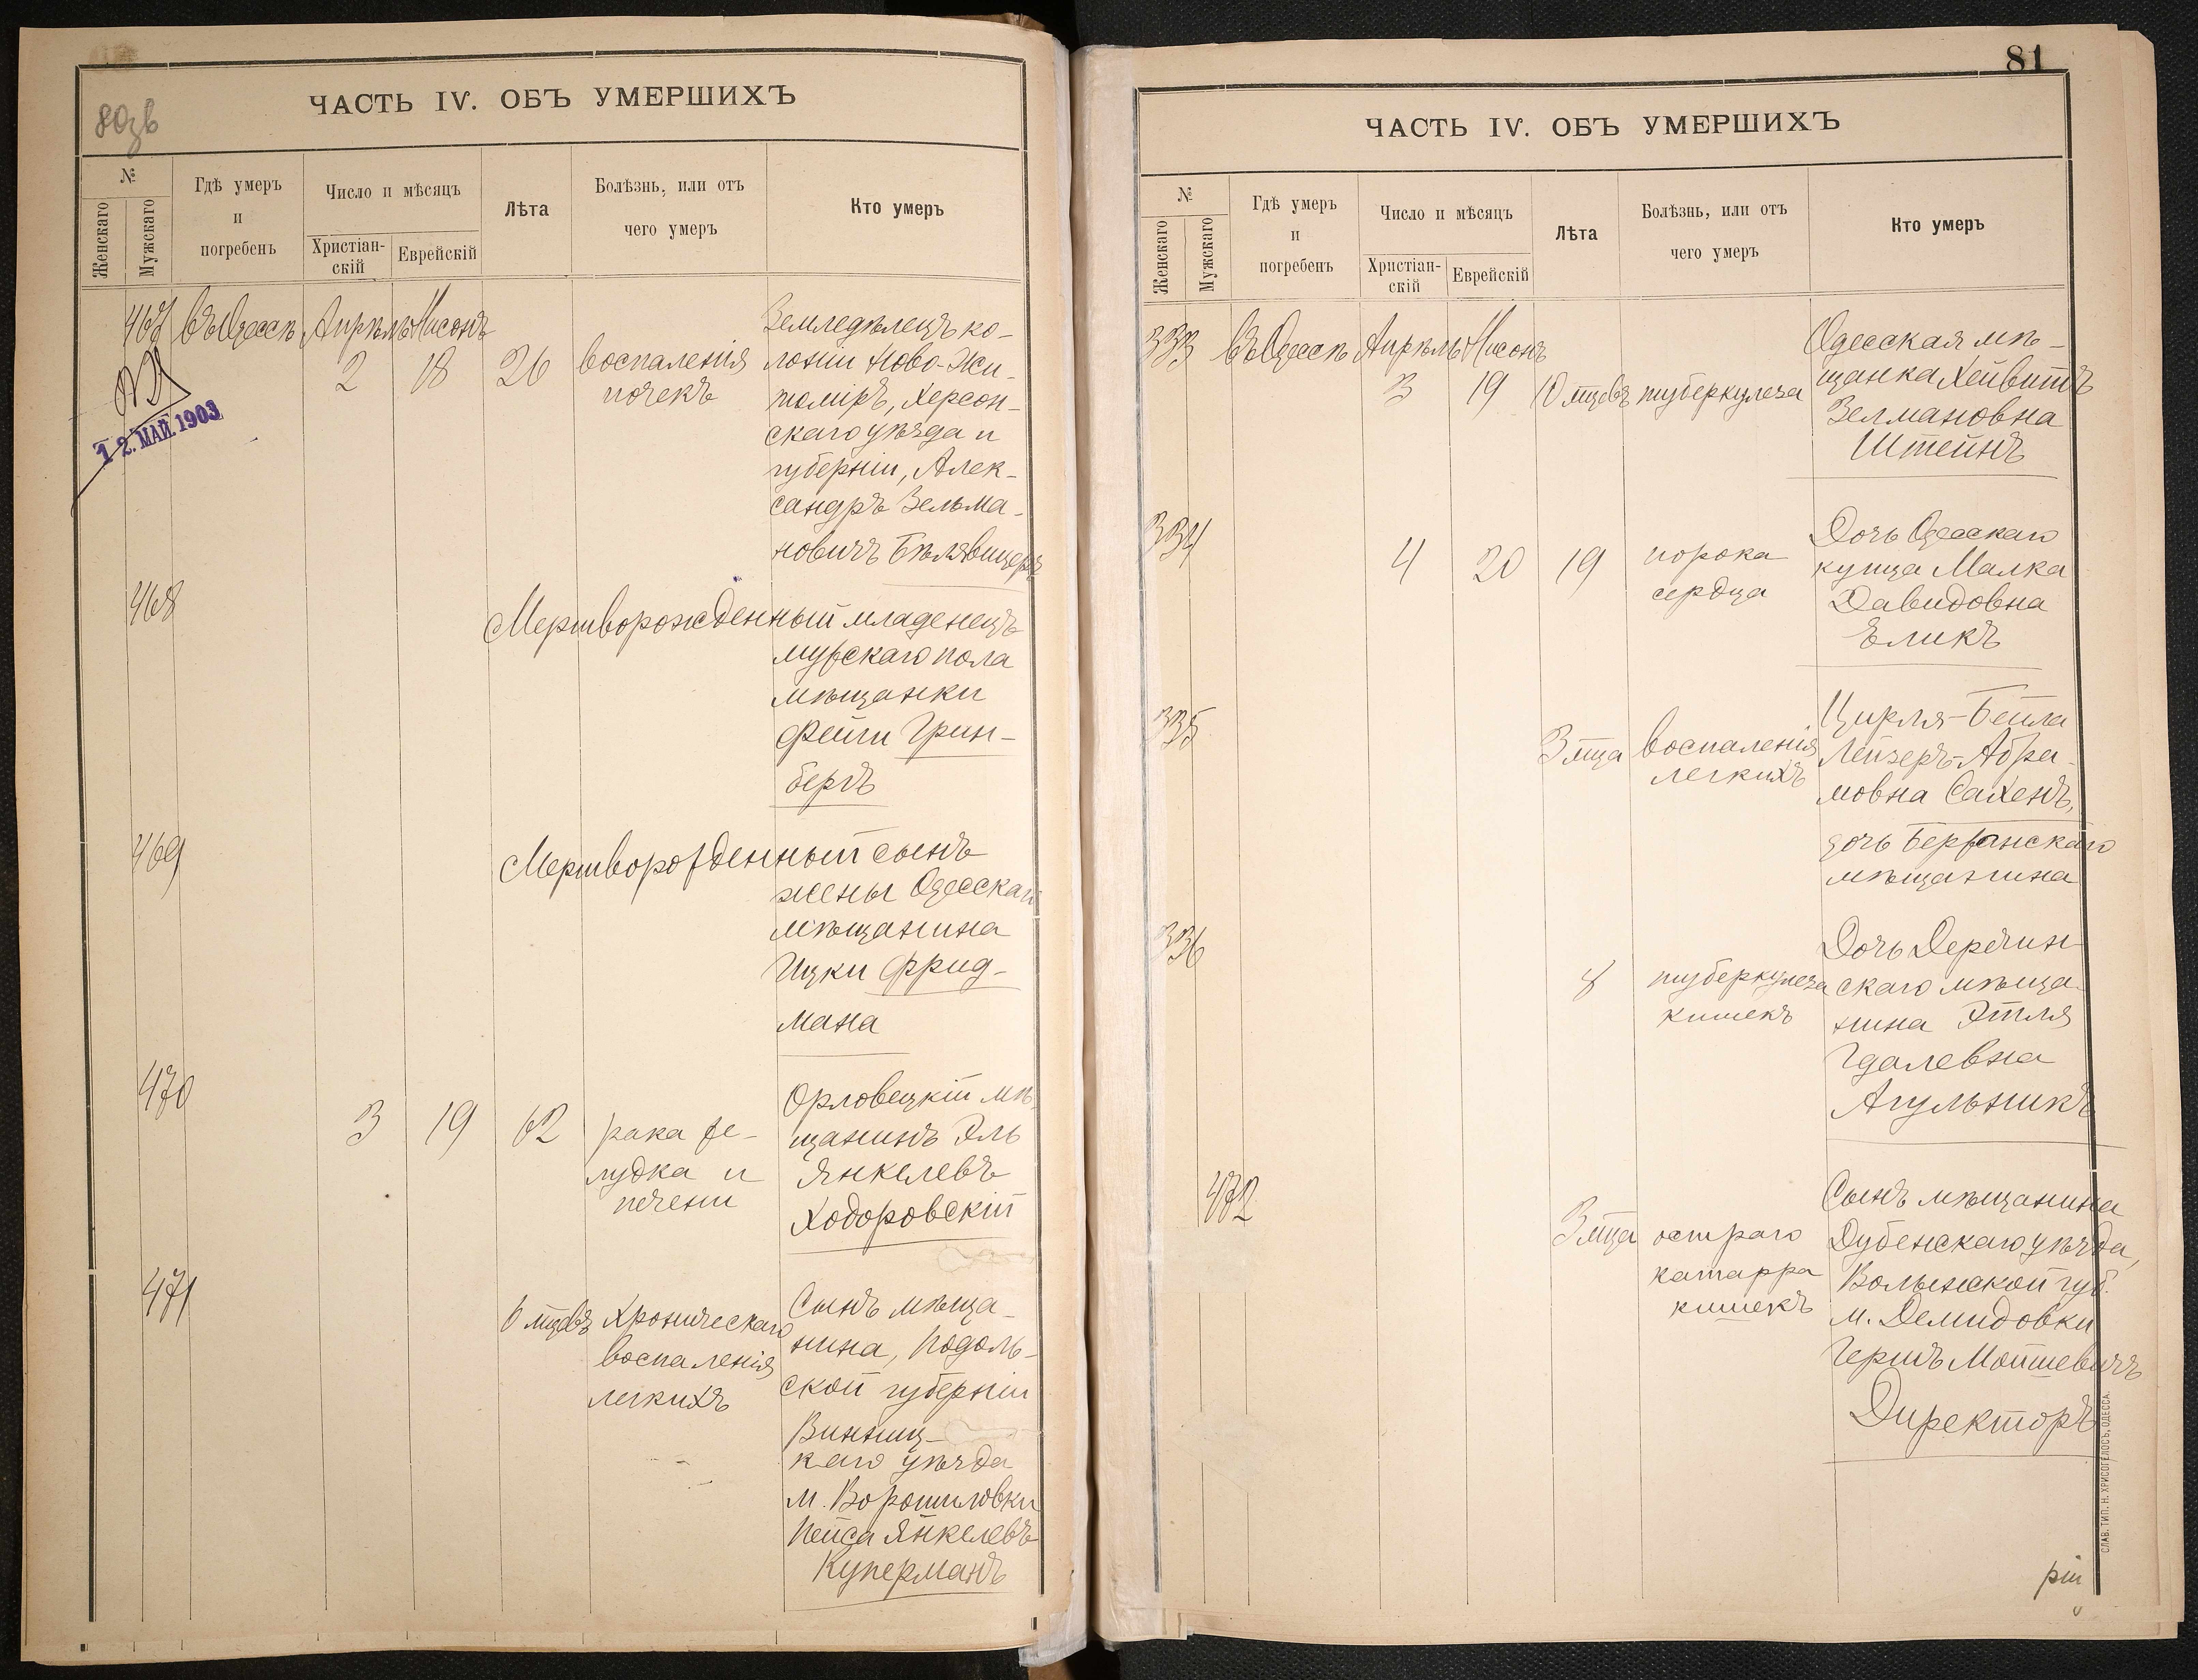 80зв
ЧАСТЬ IV. ОБЪ УМЕРШИХЪ
№
Женскаго
Мужскаго
Гдѣ умеръ
и
погребенъ
Число и мѣсяцъ
Христіан-
скій
Еврейскій
Лѣта
Болѣзнь, или отъ
чего умеръ
Кто умеръ
467 въ Одессѣ Апрѣль Нисонъ
2 18 26
воспаленія
почекъ
Земледѣлецъ ко-
лоніи Ново-Жи-
томіръ, Херсон-
скаго уѣзда и
губерніи, Алек-
сандръ Зельма-
новичъ Бѣлявицеръ
12. МАЙ. 1903
468
Мертворожденный младенецъ
мужскаго пола
мѣщанки
Фейги Грин-
бергъ
469
Мертворожденный сынъ
жены Одесскаго
мѣщанина
Ицки Фрид-
мана
470
3 19 62
рака же-
лудка и
печени
Орловецкій мѣ-
щанинъ Эль
Янкелевъ
Ходоровскій
471
6 мцевъ
Хроническаго
воспаленія
легкихъ
Сынъ мѣща-
нина, Подоль-
ской губерніи
Винниц-
каго уѣзда
м. Ворошиловки
Пейса Янкелевъ
Куперманъ
81
ЧАСТЬ IV. ОБЪ УМЕРШИХЪ
№
Женскаго
Мужскаго
Гдѣ умеръ
и
погребенъ
Число и мѣсяцъ
Христіан-
скій
Еврейскій
Лѣта
Болѣзнь, или отъ
чего умеръ
Кто умеръ
333 въ Одессѣ Апрѣль Нисонъ
3 19 10 мцевъ туберкулеза
Одесская мѣ-
щанка Хейвитъ
Зелмановна
Штейнъ
334
4 20 19
порока
сердца
Дочь Одесскаго
купца Малка
Давидовна
Еликъ
335
3 мца
воспаленія
легкихъ
Цирля-Бейла
Лейзеръ-Абра-
мовна Сахенъ,
дочь Бершанскаго
мѣщанина
336
8
туберкулеза
кишекъ
Дочь Деречин-
скаго мѣща-
нина Этля
Гдалевна
Агульникъ
472
3 мца
остраго
катарра
кишекъ
Сынъ мѣщанина
Дубенскаго уѣзда,
Волынской губ.
м. Демидовки
Гершъ Мошевичъ
Директоръ
СЛАВ. ТИП. Н. ХРИСОГЕЛОСЪ, ОДЕССА.